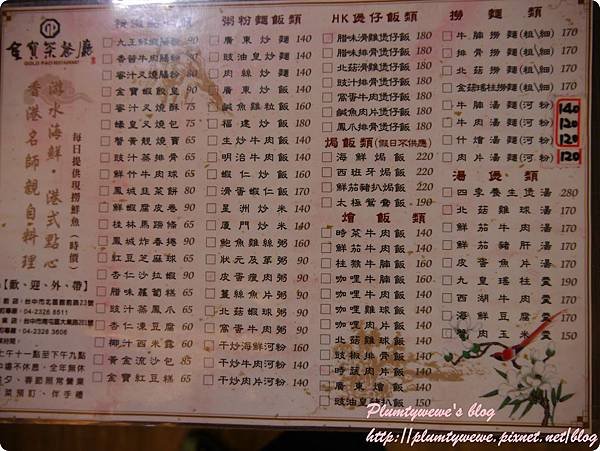 金寶茶餐廳
GOLD PAO RESTAURANT
游水海鮮‧港式點心
香港名師親自料理
每日提供現撈鮮魚(時價)
【歡、迎、外、帶】
04-2328 8511
04-2328 3606
九王鮮蝦腸粉 90
香茜牛肉腸粉 80
蜜汁叉燒腸粉 80
金寶蝦餃皇 90
蜜汁叉燒酥 75
蠔皇叉燒包 75
蟹黃鮮燒賣 65
豉汁蒸排骨 65
鮮竹牛肉球 65
鳳城韮菜餅 80
鮮蝦腐皮卷 90
桂林馬蹄條 65
鳳城炸春捲 90
紅豆芝麻球 65
杏仁沙拉蝦 90
腊味蘿蔔糕 65
豉汁蒸鳳爪 65
杏仁凍豆腐 60
椰汁西米露 60
黃金流沙包 85
金寶紅豆糕 65
粥粉麵飯類
廣東炒麵 140
豉油皇炒麵 140
肉絲炒麵 140
廣東炒飯 140
鹹魚雞粒飯 160
福建炒飯 160
生炒牛肉飯 140
明治牛肉飯 140
蝦仁炒飯 140
滑蛋蝦仁飯 160
星洲炒米 140
廈門炒米 140
鮑魚雞絲粥 90
狀元及第粥 90
皮蛋瘦肉粥 90
薑絲魚片粥 90
北菇蝦球粥 90
窩蛋牛肉粥 90
干炒海鮮河粉 160
干炒牛肉河粉 140
干炒肉片河粉 140
HK煲仔飯類
腊味滑雞煲仔飯 180
腊味排骨煲仔飯 180
北菇滑雞煲仔飯 180
豉汁排骨煲仔飯 180
窩蛋牛肉煲仔飯 180
鹹魚肉片煲仔飯 180
鳳爪排骨煲仔飯 180
焗飯類(假日不供應)
海鮮焗飯 220
西班牙焗飯 220
鮮茄豬扒焗飯 220
太極鴛鴦飯 190
燴飯類
時菜牛肉飯 140
鮮茄牛肉飯 140
枝竹牛腩飯 160
咖哩牛腩飯 160
咖哩牛肉飯 140
咖哩肉片飯 140
味菜肉片飯 140
北菇雞球飯 140
豉椒排骨飯 140
時蔬肉片飯 140
廣東燴飯 150
豉油皇豬扒飯 150
撈麵類
牛腩撈麵(粗\細) 170
排骨撈麵(粗\細) 170
北菇撈麵(粗\細) 170
金菇瑤柱撈麵 170
牛腩湯麵(河粉) 140
牛肉湯麵(河粉) 120
什燴湯麵(河粉) 120
肉片湯麵(河粉) 120
湯煲類
四季養生煲湯 280
北菇雞球湯 170
鮮茄牛肉湯 170
鮮茄豬肝湯 170
皮蛋魚片湯 170
九皇瑤柱羹 170
西湖牛肉羹 170
雞肉玉米羹 150
Plumtywewe's blog
http://plumtywewe.pixnet.net/blog